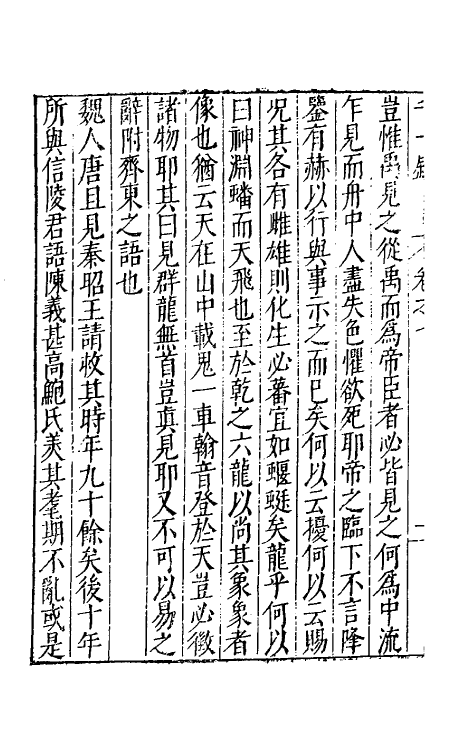 豈惟禹見之從禹而爲帝臣者必皆見之何爲中流
乍見而舟中人盡失色懼欲死耶帝之臨下不言降
鑒有赫以行與事示之而已矣何以云擾何以云賜
况其各有雌雄則化生必蕃宜如蝘蜓矣龍乎何以
曰神淵蟠而天飛也至於乾之六龍以尚其象象者
像也猶云天在山中載鬼一車翰音登於天豈必徵
諸物耶其曰見群龍無首豈眞見耶又不可以易之
辭附齊東之語也
魏人唐且見秦昭王請救其時年九十餘矣後十年
所與信陵君語陳義甚高鮑氏美其耄期不亂或是